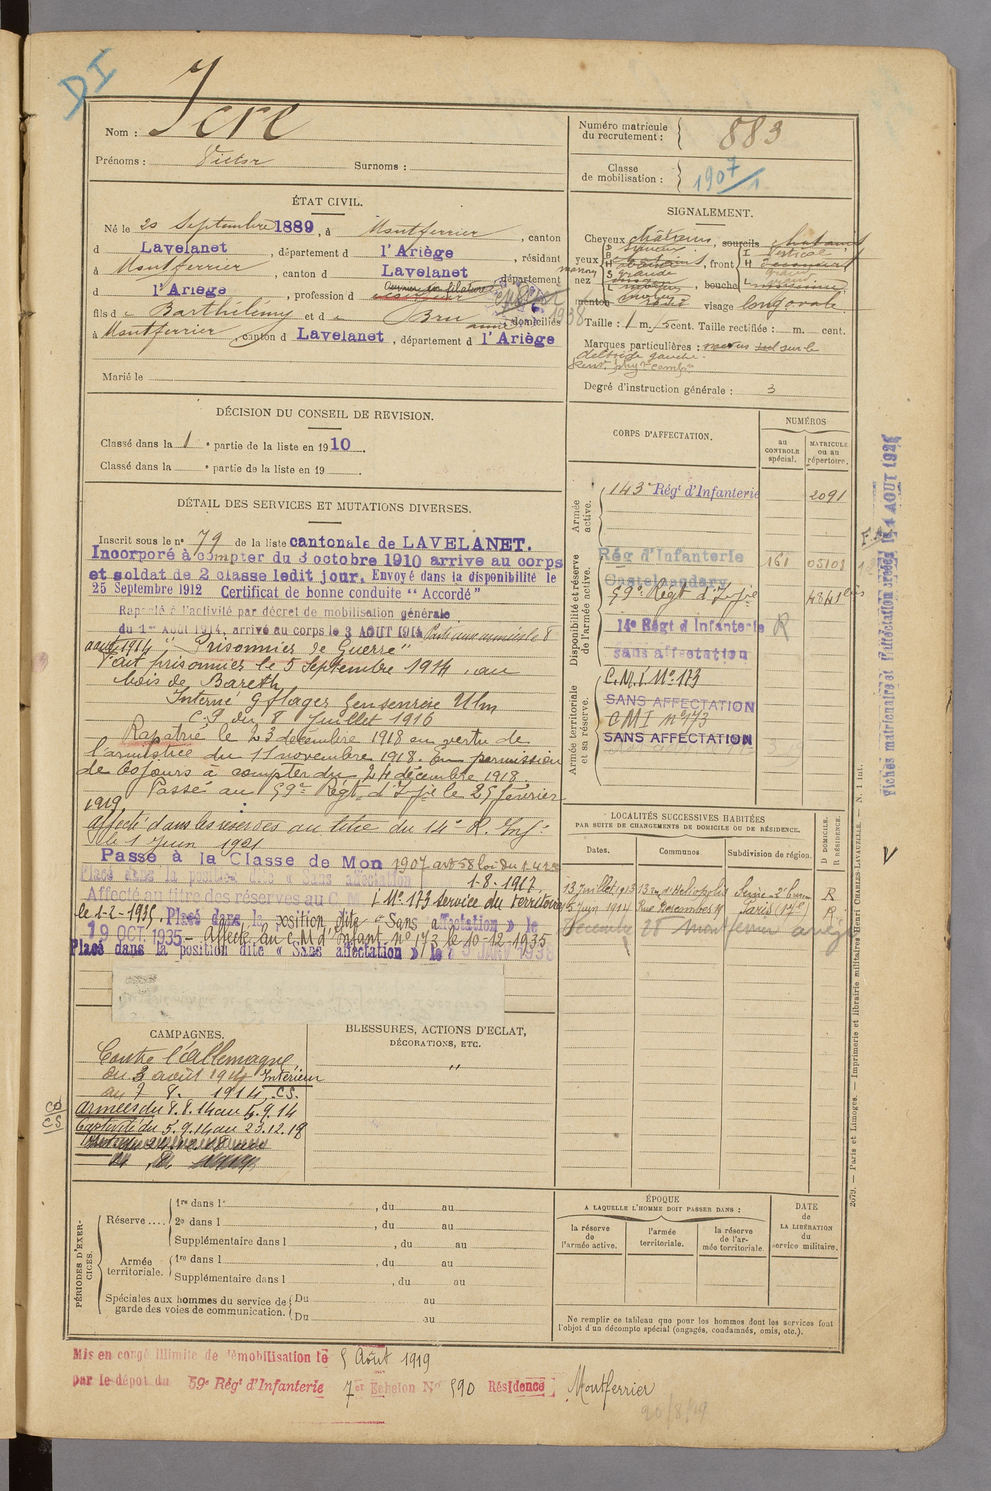 DI
Nom : Icre
Prénoms : Victor Surnoms :
Numéro matricule du recrutement : 883
Classe de mobilisation : 1907/1
ÉTAT CIVIL.
Né le 20 Septembre 1889, à Montferrier, canton
d Lavelanet, département d l'Ariège, résidant
à Montferrier, canton d Lavelanet, département
d l'Ariège, profession d
fils de Barthélémy et de Bru domiciliés
à Montferrier, canton d Lavelanet, département d l'Ariège
Marié le
SIGNALEMENT.
Cheveux châtains, sourcils châtains
yeux, front Vertical
nez, bouche
menton, visage long ovale.
Taille : 1 m. cent. Taille rectifiée : m. cent.
Marques particulières : sur le
deltoïde gauche.
Degré d'instruction générale : 3
DÉCISION DU CONSEIL DE REVISION.
Classé dans la 1e partie de la liste en 1910.
Classé dans la e partie de la liste en 19
DÉTAIL DES SERVICES ET MUTATIONS DIVERSES.
Inscrit sous le n° 79 de la liste cantonale de LAVELANET.
Incorporé à compter du 3 octobre 1910 arrive au corps
et soldat de 2 classe ledit jour. Envoyé dans la disponibilité le
25 Septembre 1912 Certificat de bonne conduite "Accordé"
Rappelé à l'activité par décret de mobilisation générale
du 1er Août 1914, arrivé au corps le 3 AOUT 1914 Parti aux armées le 8
août 1914 - "Prisonnier de Guerre"
Fait prisonnier le 5 Septembre 1914, au
bois de Bareth
Interné Gflager Ulm
C.P. du 8 Juillet 1916
Rapatrié le 23 décembre 1918 en vertu de
l'armistice du 11 novembre 1918. En permission
de 60 jours à compter du 24 décembre 1918.
Passé au 59e Régt d'Ifie le 25 février
1919
affecté dans les réserves au titre du 14e R. Inf.
le 1 Juin 1921
Passé à la Classe de Mon 1907 art 58 loi du 1.4.23
Placé dans la position dite « Sans affectation 1-8-1927
Affecté au titre des réserves au C. M. I N° 173 service du territoire
le 1-2-1935. Placé dans la position dite « Sans affectation » le
19 OCT. 1935 - Affecté au C M d'Infant. n° 173 le 10-12-1935
Placé dans la position dite « Sans affectation » le JANV 1938
CORPS D'AFFECTATION.
NUMÉROS
au CONTROLE spécial.
MATRICULE ou au répertoire.
Armée active.
143e Régt d'Infanterie 2091
Disponibilité et réserve de l'armée active.
Rég d'Infanterie 161 05108
Castelnaudary
59e Régt d'Ifie
14e Régt d'Infanterie R
sans affectation
Armée territoriale et sa réserve.
C.M.I N° 173
SANS AFFECTATION
CMI n° 173
SANS AFFECTATION
LOCALITÉS SUCCESSIVES HABITÉES
PAR SUITE DE CHANGEMENTS DE DOMICILE OU DE RÉSIDENCE.
Dates. Communes. Subdivision de région. D DOMICILE. R RÉSIDENCE.
13 Juillet 1913 13 rue d'Héliopolis Seine 2e bureau R
5 Juin 1914 Rue Descombes Paris (17e) R
Décembre 08 Montferrier ariège
CAMPAGNES.
Contre l'allemagne
du 3 août 1914 Intérieur
au 7. 8. 1914. C.S.
armées du 8.8.14 au 5.9.14
Captivité du 5.9.14 au 23.12.18
BLESSURES, ACTIONS D'ECLAT,
DÉCORATIONS, ETC.
"
PÉRIODES D'EXERCICES.
Réserve .... 1re dans l , du au
2e dans l , du au
Supplémentaire dans l , du au
Armée territoriale. 1re dans l , du au
Supplémentaire dans l , du au
Spéciales aux hommes du service de garde des voies de communication. Du au
Du au
ÉPOQUE
A LAQUELLE L'HOMME DOIT PASSER DANS :
la réserve de l'armée active.
l'armée territoriale.
la réserve de l'armée territoriale.
DATE DE LA LIBÉRATION du service militaire.
Ne remplir ce tableau que pour les hommes dont les services font
l'objet d'un décompte spécial (engagés, condamnés, omis, etc.).
Mis en congé illimité de démobilisation le 5 Août 1919
par le dépôt du 59e Rég' d'Infanterie 7e Echelon N° 590 Résidence Montferrier
20/8/19
2079. — Paris et Limoges. — Imprimerie et librairie militaires Henri CHARLES-LAVAUZELLE. — N. 1 int.
V